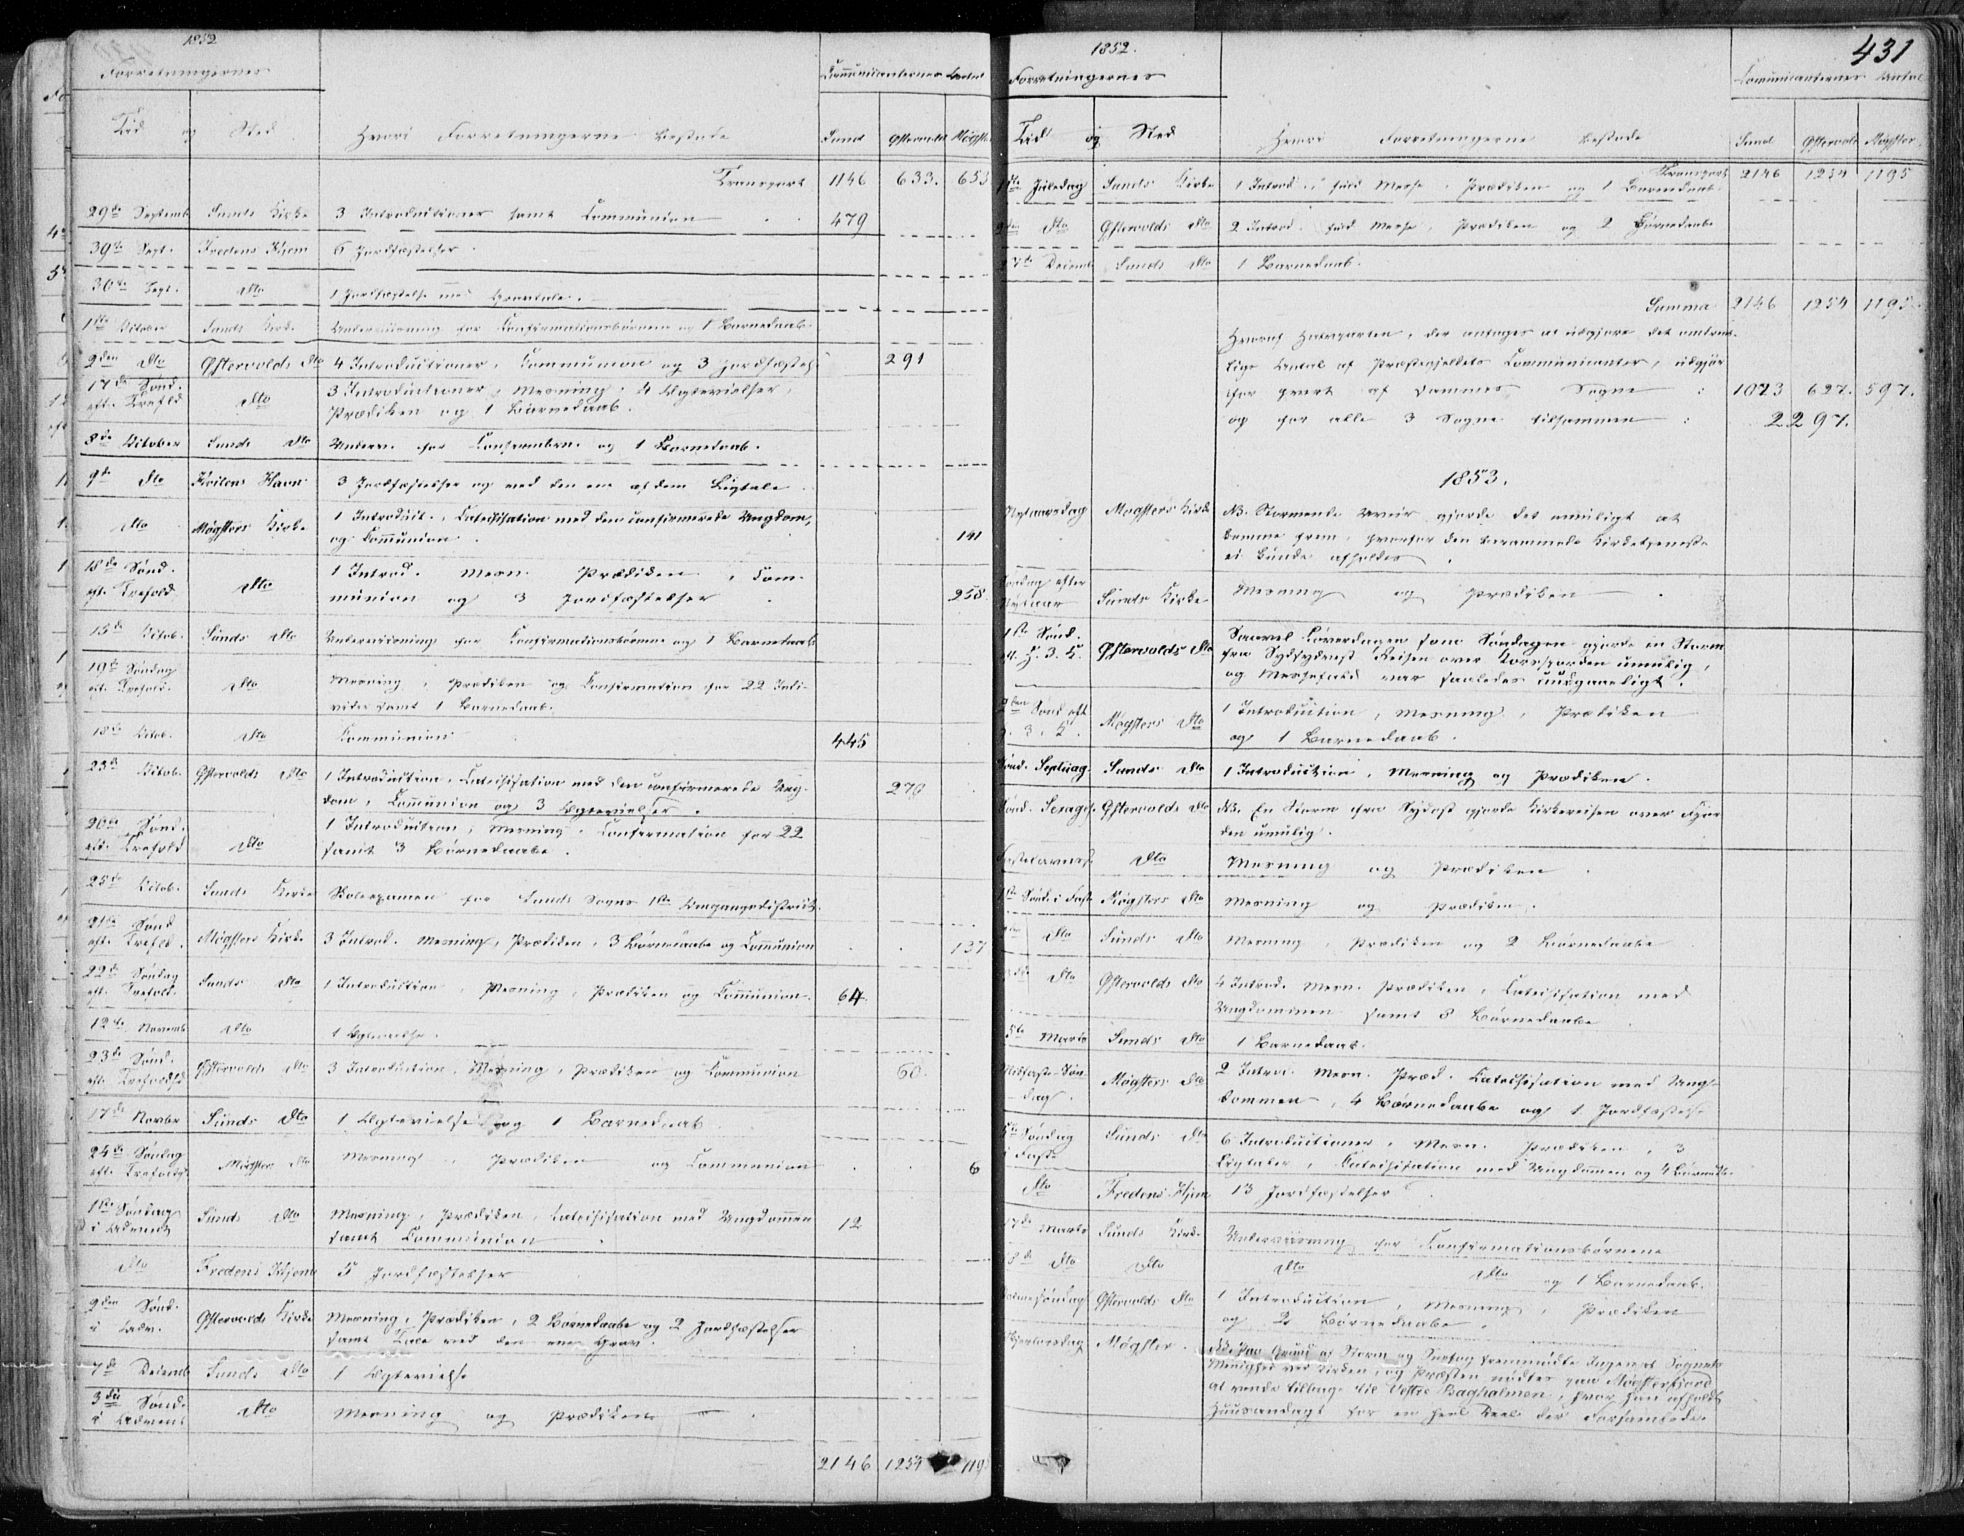 1852
Forretningernes
Communicanternes Antal
Tid og Sted
Hvori Forretningerne bestode
Sund Østervold Møgster
Transport 1146 633. 653
29de Septemb Sunds Kirke 3 Introductioner samt Communion 479
39te Sept. Fredens Hjem 6 Jordfæstelser.
30te Sept. dto 1 Jordfæstelse med Gravtale.
1ste October Sunds Kirke Underviisning for Confirmationsbørnene og 1 Barnedaab.
2den dto Østervolds dto 4 Introductioner, Communion og 3 Jordfæstels. 291
17de Sönd.
eft. Trefold. dto 3 Introductioner, Messning, 4 Ægtevielser,
Prædiken og 1 Barnedaab.
8de October Sunds dto Underv. for Confirmbrn. og 1 Barnedaab.
9de dto Hvilens Havn 3 Jordfæstelser og ved den ene af dem Ligtale
dto Møgsters Kirke 1 Introduct., Catechisation med den confirmerede Ungdom,
og Communion. 141
18de Sönd.
eft. Trefold. dto 1 Introd. Messn. Prædiken, Com-
munion og 3 Jordfæstelser 258.
15de Octob. Sunds dto Underviisning for Confirmationsbørnene og 1 Barnedaab
19de Söndag
eft. Trefold. dto Messning, Prædiken og Confirmation for 22 Indi-
vider samt 1 Barnedaab.
18de Octob. dto Communion 445
23de Octob. Østervolds dto 1 Introduction, Catechisation med den confirmerede Ung-
dom, Communion og 3 Ægtevielser. 270
20de Sönd.
eft. Trefold dto 1 Introduction, Messning, Confirmation for 22
samt 3 Børnedaabe.
25de Octob. Sunds Kirke Skoleexamen for Sunds Sogns 1ste Omgangsdistrict.
21de Sönd
eft. Trefld. Møgsters Kirke 3 Introd. Messning, Prædiken, 3 Børnedaabe og Communion 137
22de Söndag
eft. Trefold. Sunds dto 1 Introduction, Messning, Prædiken og Communion. 64
12te Novemb dto 1 Ægtevielse.
23de Sönd.
eft. Trefoldhd Østervolds dto 3 Introduction, Messning, Prædiken og Communion 60.
17de Novbr Sunds dto 1 Ægtevielse og 1 Barnedaab
24de Söndag
eft. Trefoldgh. Møgster dto Messning, Prædiken og Communion 6
1ste Söndag
i Advents Sunds dto Messning, Prædiken, Catechisation med Ungdommen
samt Communion 12
dto Fredens Hjem 5 Jordfæstelser
2den Sönd.
i Adv. Østervolds Kirke Messning, Prædiken, 2 Børnedaabe og 2 Jordfæstelser
samt Tale ved den ene Grav.
7de Decemb Sunds dto 1 Ægtevielse
3die Sönd.
i Advent dto Messning og Prædiken
2146 1254 119
1852. 431
Forretningernes
Communicanternes Antal
Tid og Sted
Hvori Forretningerne bestode
Sund Østervold Møgster
Transport 2146 1254 1195
1ste Juledag Sunds Kirke 1 Introd. fuld Messe, Prædiken og 1 Barnedaab
2den dto Østervolds dto 2 Introd. fuld Messe, Prædiken og 2 Børnedaabe
Decemb Sunds dto 1 Barnedaab.
Summa 2146 1254 1195.
Hvoraf Halvparten, der antages at udgjøre det omtrent-
lige Antal af Præstegjeldets Communicanter, udgjør
for hvert af sammes Sogne : 1073 627. 597.
og for alle 3 Sogne tilsammen : 2297.
1853.
Nytaarsdag Møgsters Kirke NB. Stormende Veir gjorde det umuligt at
komme frem, hvorfor den berammede Kirketjeneste
ei kunde afholdes.
Söndag efter
Nytaar Sunds Kirke Messning og Prædiken
1ste Sönd.
eft. H. 3. K. Østervolds dto Saavel Løverdagen som Söndagen gjorde en Storm
fra Sydsydvest Reisen over Korsfjorden umulig,
og Messefald var saaledes uundgaaeligt.
2den Sönd eft
H. 3. K. Møgsters dto 1 Introduction, Messning, Prædiken
og 1 Barnedaab.
Sönd. Septuag. Sunds dto 1 Introduction, Messning og Prædiken.
Sönd. Sexages. Østervolds dto NB. En Storm fra Sydost gjorde Kirkereisen over Fjor-
den umulig.
Fastelavns dto Messning og Prædiken
1ste Sönd. i Fast Møgsters dto Messning og Prædiken.
dto Sunds dto Messning, Prædiken og 2 Børnedaabe
dto Østervolds dto 4 Introd. Messn. Prædiken, Catechisation med
Ungdommen samt 3 Børnedaabe
5te Marts Sunds dto 1 Barnedaab.
Midfaste-Sön-
dag. Møgsters dto 2 Introd. Messn. Præd. Catechisation med Ung-
dommen, 4 Børnedaabe og 1 Jordfæstelse
5te Söndag
i Faste Sunds dto 6 Introductioner, Messn. Prædiken, 3
Ligtaler, Catechisation med Ungdommen og 4 Børnedb.
dto Fredens Hjem 13 Jordfæstelser
17de Marts Sunds Kirke Underviisning for Confirmationsbørnene
18de dto dto dto dto og 1 Barnedaab.
Palmesöndag Østervolds dto 1 Introduction, Messning, Prædiken
og 2 Børnedaabe.
Skjertorsdag Møgster. NB. Paa Grund af Storm og Snefog fremmødte Ingen af Sognets
Menighed ved Kirken, og Præsten nødtes paa Møgsterfjord
at vende tilbage til Vestre Bagholmen, hvor han afholdt
Huusandagt for en heel Deel der Forsamlede.